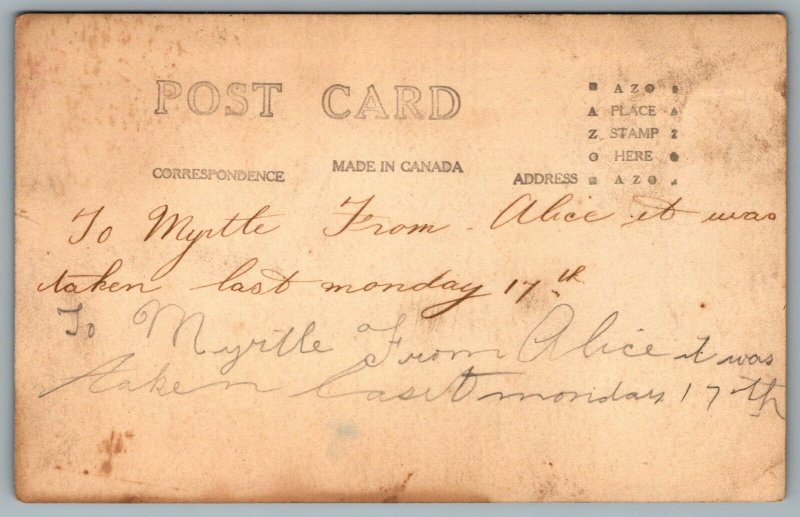 POST CARD
CORRESPONDENCE
MADE IN CANADA
ADDRESS
AZO
A PLACE A
Z STAMP Z
O HERE O
AZO
To Myrtle From. Alice it was
taken last monday 17th
To Myrtle From Alice it was
taken last monday 17th